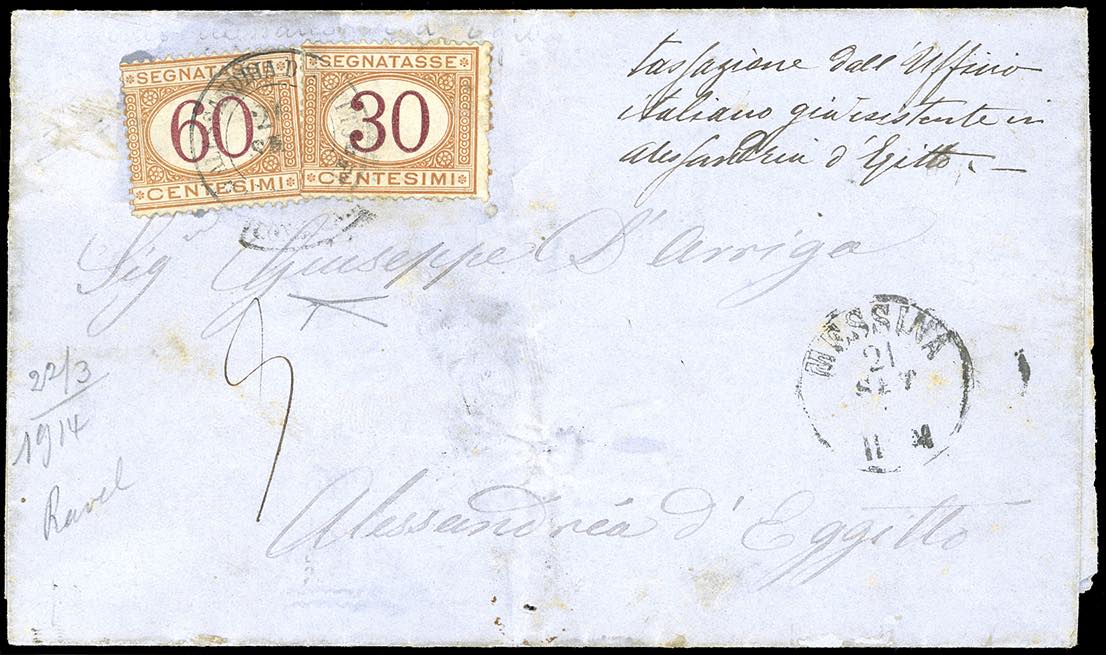 SEGNATASSE
60
CENTESIMI
SEGNATASSE
30
CENTESIMI
tassazione dall'Uffizio
italiano già esistente in
Alessandria d'Egitto.
Sig Giuseppe D'Arriga
MESSINA
21
SET
11 M
22/3
1914
Ravel
Alessandréa d'Eggitto